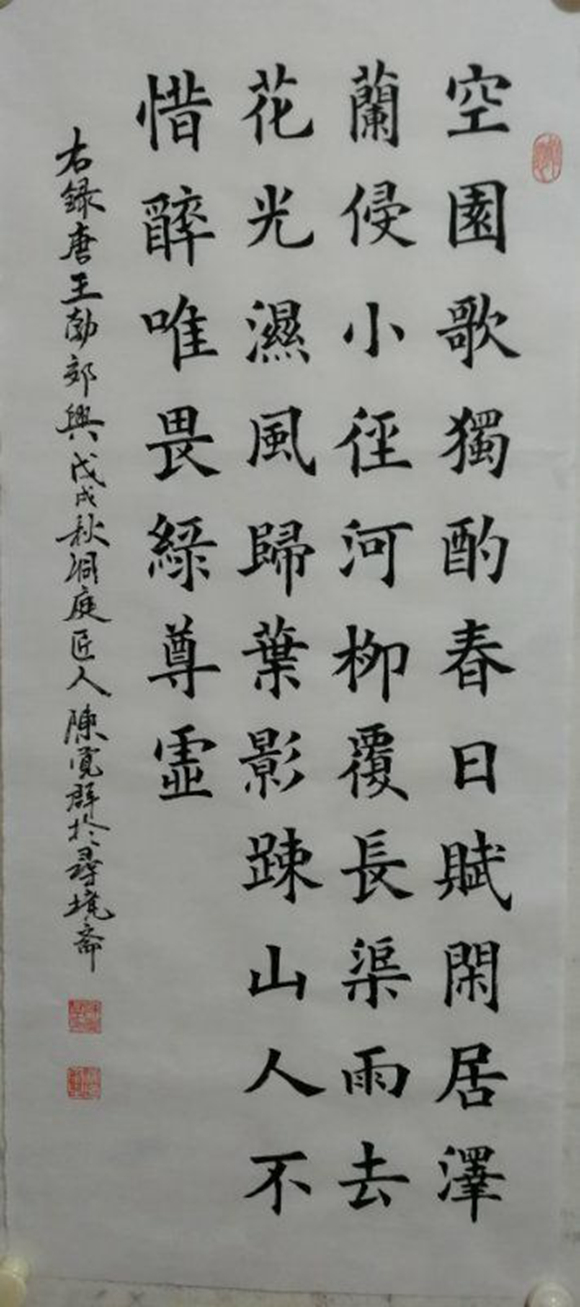 空園歌獨酌春日賦閑居澤
蘭侵小徑河柳覆長渠雨去
花光濕風歸葉影踈山人不
惜醉唯畏綠尊虛
右録唐王勃郊興戊戌秋洞庭匠人陳寬群於尋境齋